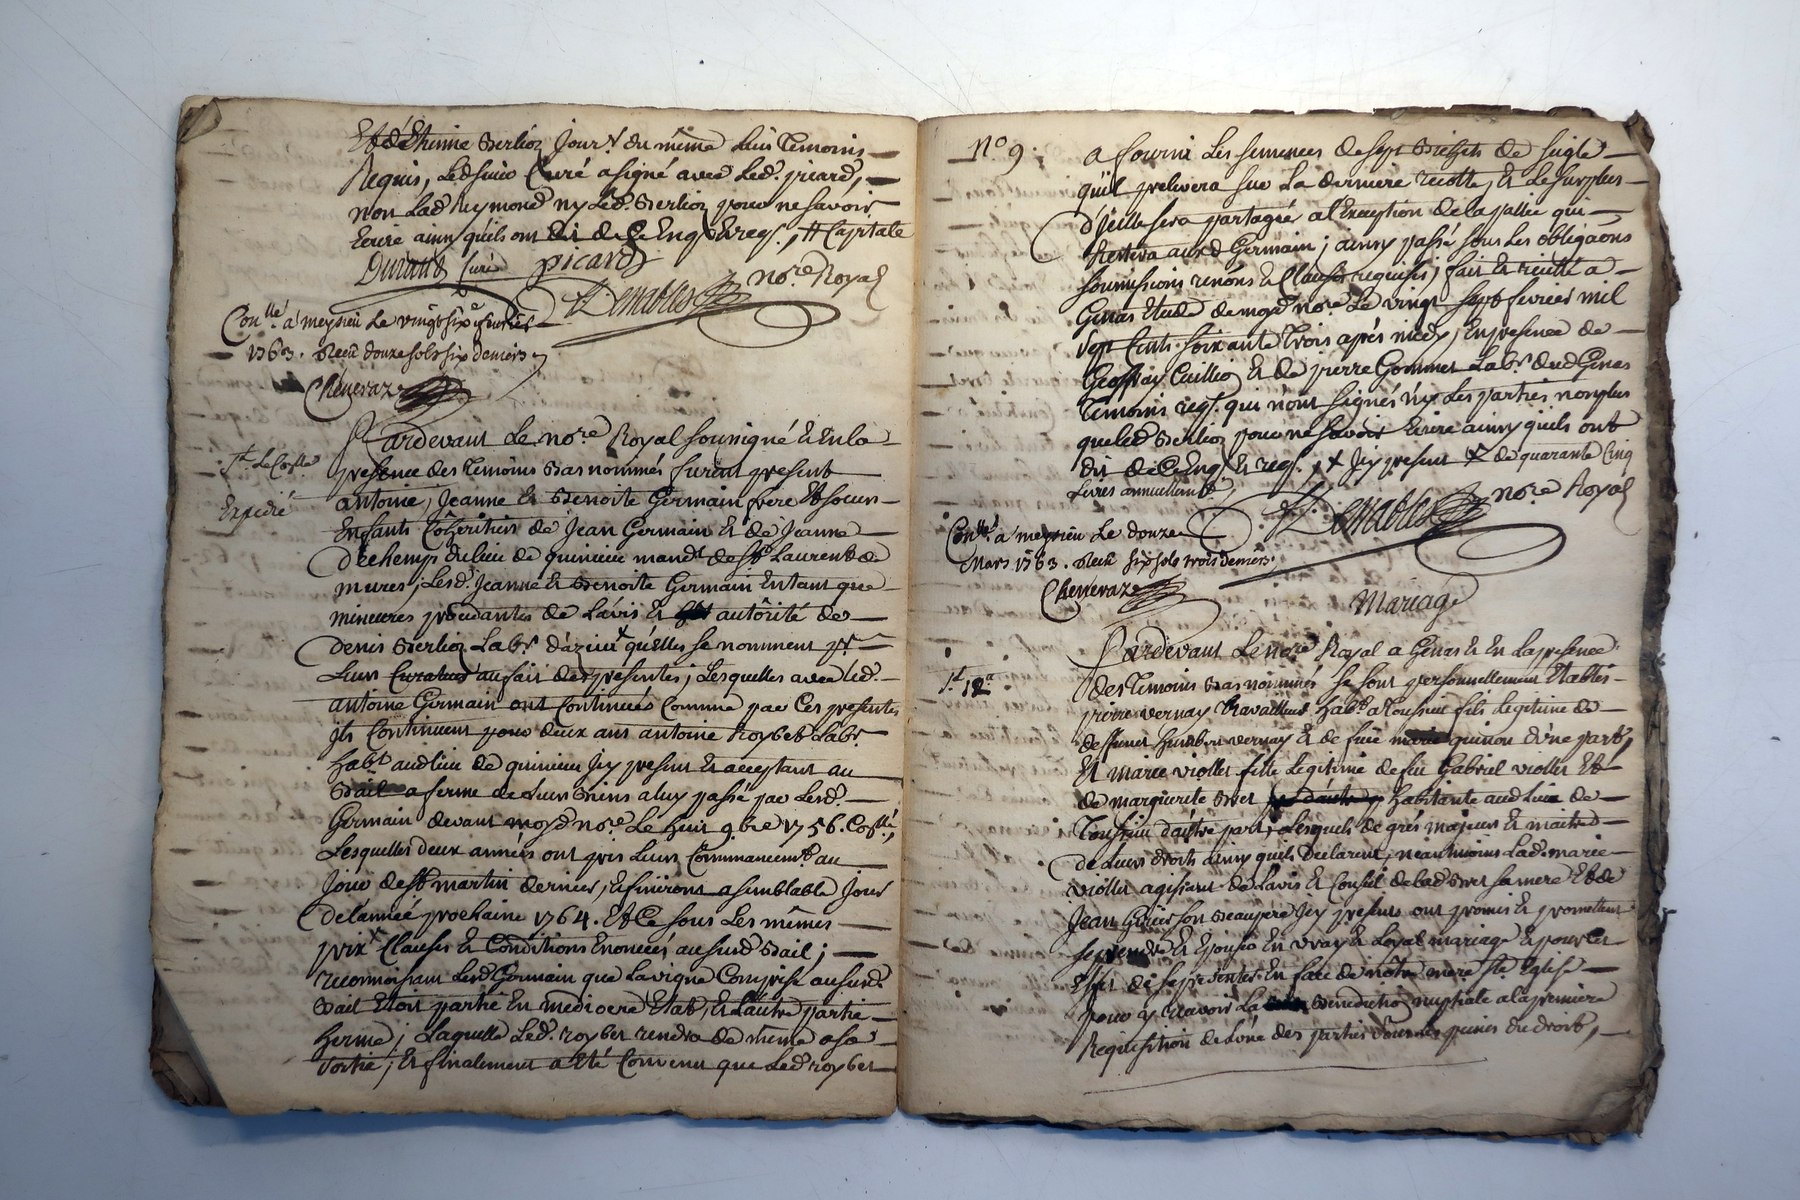 Et d'Etienne Berlioz Jour.r du même lieu Temoins
Requis, Led. sieur Curé a signé avec Led. picard,
non Lad. Reymond ny Led. Berlioz pour ne savoir
Ecrire ainsy quils ont dit de ce Enq. & req., # Capitale
Durand Curé picard
Demables no.re Royal
Con.llé a meysieu Le vingt six e fevrier
1763. Recu douze sols six deniers
Cheneraz
Pardevant Le no.re Royal soussigné & En la
presence des Temoins Bas nommés furent presents
antoine, Jeanne & Benoite Germain frere Et soeurs
Enfants Coheritiers de Jean Germain & de Jeanne
Dechemp du lieu de quincieu mand.t de St Laurent de
mures; Lesd. Jeanne & Benoite Germain En tant que
mineures procedantes de L'avis & autôrité de
Denis Berlioz Lab.r d'azieu x qu'elles se nomment p.r
Leur Curateur au fait des presentes; Lesquelles avec led.
antoine Germain ont Continués Comme par Ces presentes
ils Continuent pour deux ans antoine Roybet Lab.r
hab.t aud. lieu de quincieu Icy present & acceptant au
Bail a ferme de Leurs Biens a luy passé par Lesd.
Germain devant moyd. no.re Le huit 9.bre 1756. Con.llé,
Lesquelles deux années ont pris Leurs Commancem.t au
Jour de St martin dernier, & finiront a semblable Jour
de l'année prochaine 1764. Et Ce sous Les mêmes
prix x Clauses & Conditions Enoncées au susd. Bail;
reconnoissant Lesd. Germain que La vigne Comprise au susd.
Bail Etoit partie En mediocre Etat, & L'autre partie
herme; Laquelle Led. roybet rendra de même a sa
sortie; & finalement a Eté Convenu que Led. roybet
St. Le Con.lle
Expedié
N.o 9.
a fourni Les semences de sept Bichets de seigle
quil prelevera sur La derniere recolte, & Le surplus
d'Icelle sera partagée a l'Exception de la paille qui
Restera auxd. Germain; ainsy passé sous Les obligaôns
soumissions renôns & Clauses requises; fait & recitté a
Genas Etude de moyd. no.re Le vingt sept fevrier mil
sept Cents soixante Trois après midy, En presence de
Geoffray Cuillier & de pierre Gommet Lab.rs dud. Genas
Temoins req. qui n'ont signés ny Les parties non plus
que led. Berlioz pour ne savoir Ecrire ainsy quils ont
dit de ce Enq. & req., x Icy present x de quarante Cinq
Livres annuellem.t
Demables no.re Royal
Con.llé a meysieu Le douze
Mars 1763. Recu six sols trois deniers.
Cheneraz
Mariage
Pardevant Le no.re Royal a Genas & En La presence
des Temoins Bas nommés se sont personnellement Etablis
pierre vernay Travailleur hab.t a Toussieu fils Legitime de
deffunt humbert vernay & de feüe marie guinon d'une part,
Et marie viollet fille Legitime de feu Gabriel viollet Et
de marguerite Bret habitante aud. Lieu de
Toussieu d'autre part; Lesquels de grés majeurs & maitres
de Leurs droits ainsy quils Declarent, neantmoins Lad. marie
viollet agissant de L'avis & Conseil de lad. Bret sa mere Et de
Jean son Beaupere Icy presents ont promis & promettent
se prendre & Epouser En vray & Loyal mariage & pour Cet
Effet de se presenter En face de nôtre mere Ste Eglise
pour y recevoir La Benediction nuptiale a la premiere
Requisition de L'une des parties sous les peines du droit,
St. 12.a